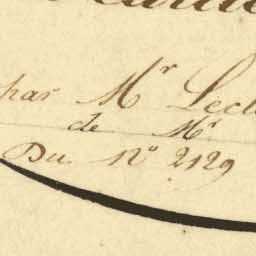 par Mr Lecl
de Mr
Du No 2129